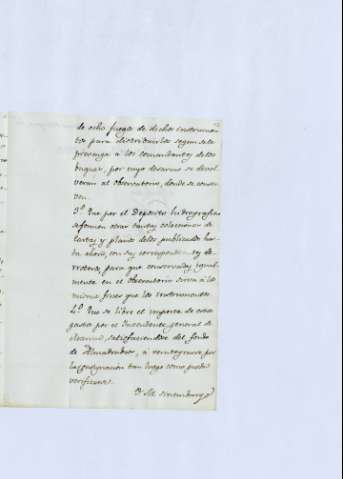 de ocho juegos de dichos instrumen-
tos para distribuirlos segun se le
prevenga à los comandantes de los
buques, por cuyo desarme se devol-
veran al observatorio, donde se conser-
ven.
3º Que por el Deposito hidrografico
se formen otras tantas colecciones de
cartas y planos de los publicados has-
ta ahora, con sus correspondientes de-
rroteros, para que conservados igual-
mente en el observatorio sirvan à los
mismos fines que los instrumentos
4º Que se libre el importe de estos
gastos por el Intendente general de
Marina, satisfaciendose del fondo
de Almadrabas, à reintegrarse por
la consignacion tan luego como pueda
verificarse.